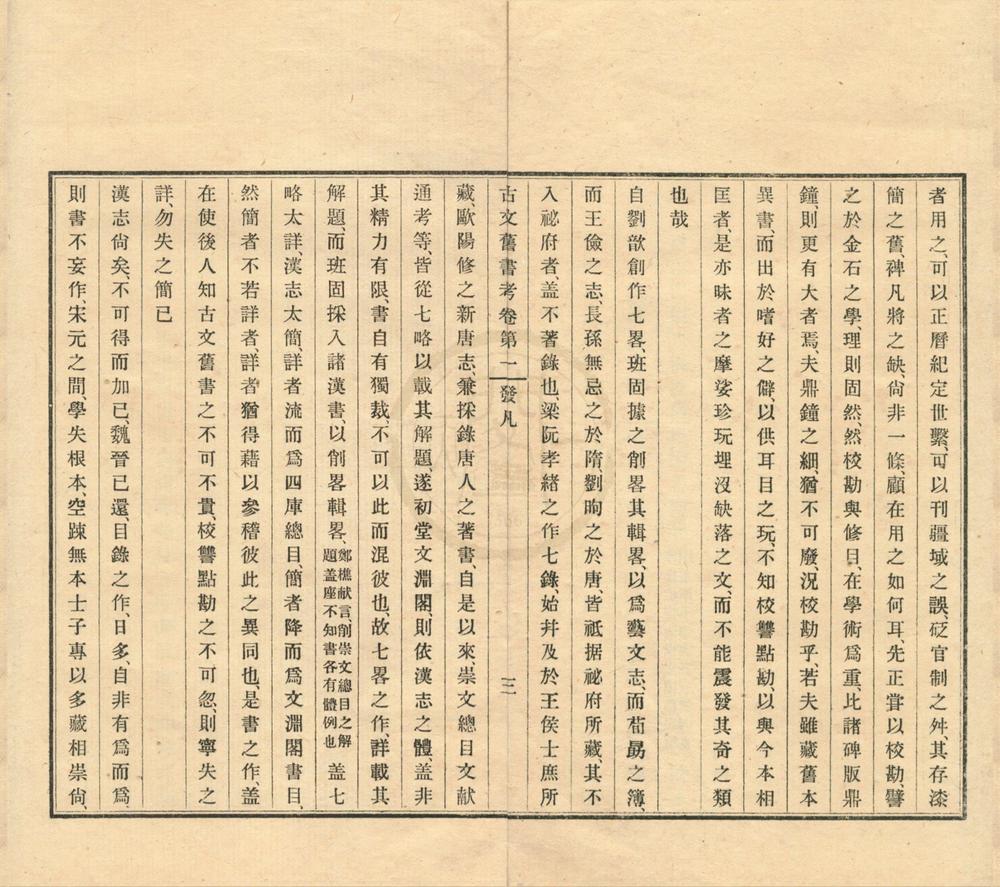 者用之、可以正曆紀定世繫、可以刊疆域之誤、砭官制之舛、其存漆
簡之舊、裨凡將之缺、尙非一條、顧在用之如何耳、先正嘗以校勘、譬
之於金石之學、理則固然、然校勘與修目、在學術爲重、比諸碑版鼎
鐘、則更有大者焉、夫鼎鐘之細、猶不可廢、況校勘乎、若夫雖藏舊本
異書、而出於嗜好之僻、以供耳目之玩、不知校讐點勘、以與今本相
匡者、是亦昧者之摩娑珍玩埋沒缺落之文、而不能震發其奇之類
也哉
自劉歆創作七畧、班固據之削畧其輯畧、以爲藝文志、而荀勗之簿、
而王儉之志、長孫無忌之於隋、劉昫之於唐、皆祗据祕府所藏、其不
入祕府者、盖不著錄也、梁阮孝緒之作七錄、始幷及於王侯士庶所
古文舊書考卷第一 發凡 三
藏、歐陽修之新唐志、兼採錄唐人之著書、自是以來、崇文總目文献
通考等皆從七略以載其解題、遂初堂文淵閣、則依漢志之體、盖非
其精力有限、書自有獨裁、不可以此而混彼也、故七畧之作、詳載其
解題、而班固採入諸漢書、以削畧輯畧、鄭樵献言、削崇文總目之解題盖座不知書各有體例也 盖七
略太詳、漢志太簡、詳者流而爲四庫總目、簡者降而爲文淵閣書目、
然簡者不若詳者、詳者猶得藉以參稽彼此之異同也、是書之作、盖
在使後人知古文舊書之不可不貴、校讐點勘之不可忽、則寧失之
詳、勿失之簡已
漢志尙矣、不可得而加已、魏晉已還、目錄之作、日多、自非有爲而爲、
則書不妄作、宋元之間、學失根本、空踈無本士子專以多藏相崇尙、